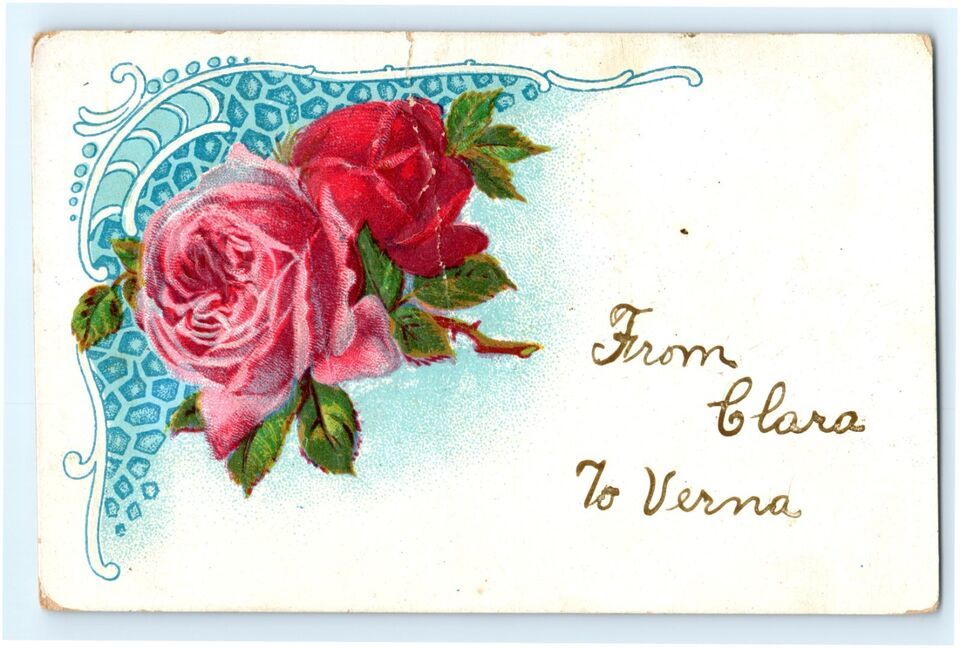 From
Clara
To Verna